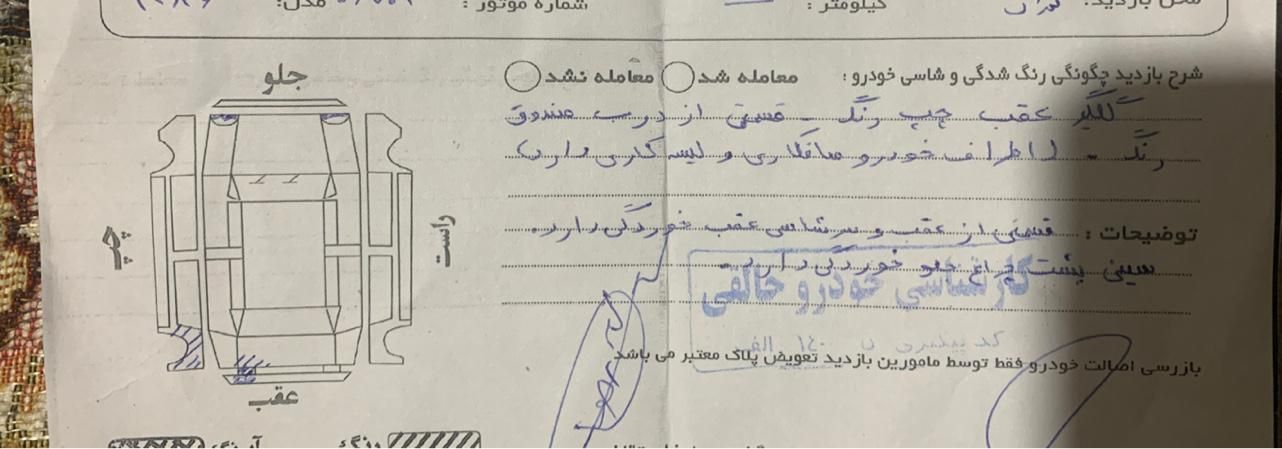 محل بازدید: تهران کیلومتر : شماره موتور : مدل:
شرح بازدید چگونگی رنگ شدگی و شاسی خودرو : معامله شد معامله نشد
گلگیر عقب چپ رنگ - قسمتی از درب صندوق
رنگ - (اطراف خودرو صافکاری و لیسه کاری دارد)
توضیحات : قسمتی از عقب و سر شاسی عقب خوردگی دارد.
سینی پشت چراغ جلو خوردگی دارد.
کارشناسی خودرو خالقی
بازرسی اصالت خودرو فقط توسط مامورین بازدید تعویض پلاک معتبر می باشد
جلو
چپ
راست
عقب
رنگ